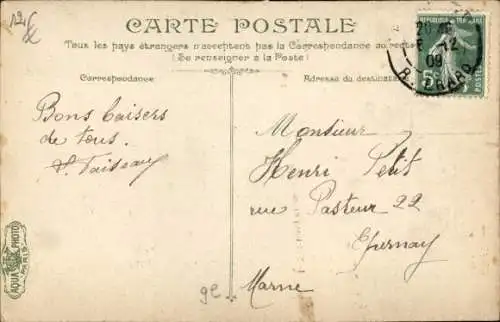 CARTE POSTALE
Tous les pays étrangers n'acceptent pas la Correspondance au recto
(Se renseigner à la Poste)
Correspondance
Adresse du destinat
REPUBLIQUE
5c
POSTES
12
09
Bons baisers
de tous.
Monsieur
Henri Petit
rue Pasteur 22
Epernay
Marne
AQUA PHOTO